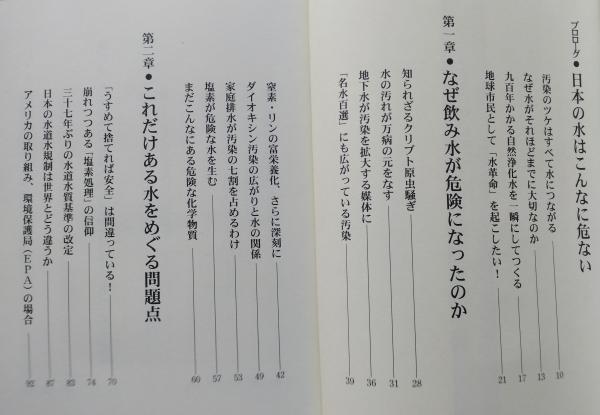 プロローグ●日本の水はこんなに危ない
汚染のツケはすべて水につながる 10
なぜ水がそれほどまでに大切なのか 13
九百年かかる自然浄化水を一瞬にしてつくる 17
地球市民として「水革命」を起こしたい！ 21
第一章●なぜ飲み水が危険になったのか
知られざるクリプト原虫騒ぎ 28
水の汚れが万病の元をなす 31
地下水が汚染を拡大する媒体に 36
「名水百選」にも広がっている汚染 39
窒素・リンの富栄養化、さらに深刻に 42
ダイオキシン汚染の広がりと水の関係 49
家庭排水が汚染の七割を占めるわけ 53
塩素が危険な水を生む 57
まだこんなにある危険な化学物質 60
第二章●これだけある水をめぐる問題点
「うすめて捨てれば安全」は間違っている！ 70
崩れつつある「塩素処理」の信仰 74
三十七年ぶりの水道水質基準の改定 83
日本の水道水規制は世界とどう違うか 87
アメリカの取り組み、環境保護局（EPA）の場合 92